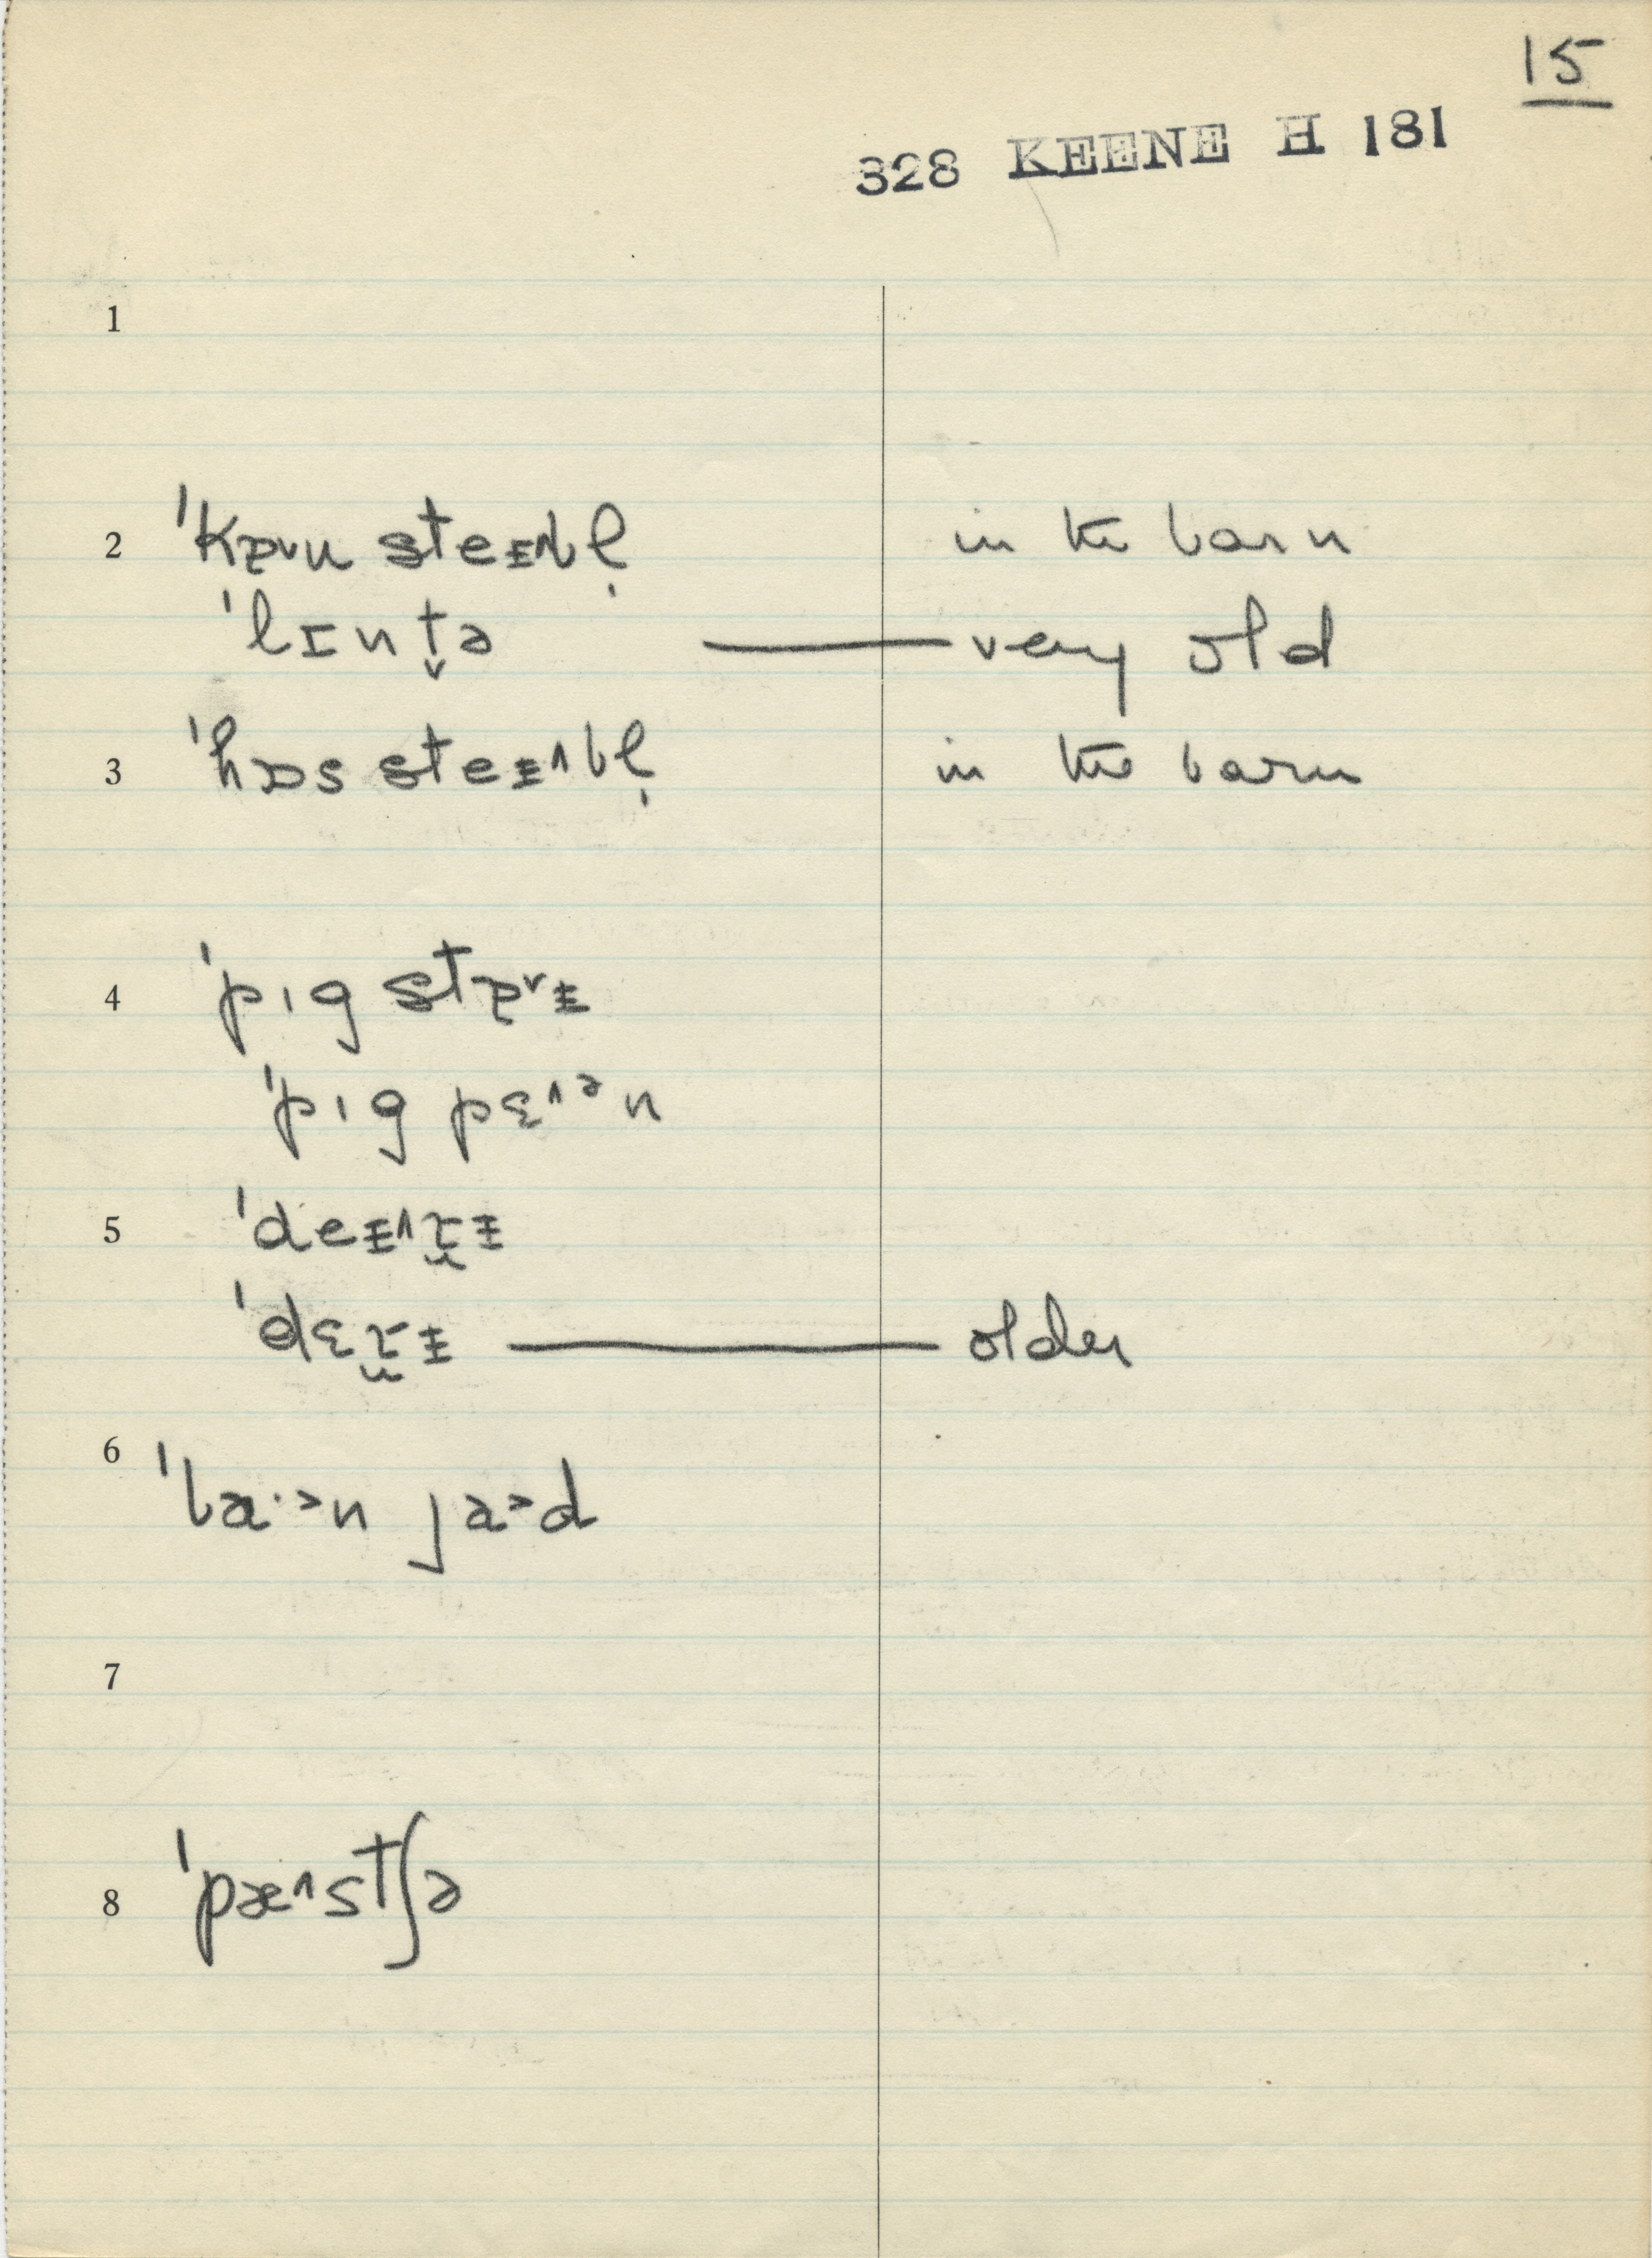 15
328 KEENE H 181
1
2 ˈkɒ˅u steᵻ˄bl̩ in the barn
ˈlɪnt̬ə — very old
3 ˈhɒs steᵻ˄bl̩ in the barn
4 ˈpɪg stɒ˅ᵻ
ˈpɪg pɛ˄ᵊn
5 ˈdeᵻ˄t̬ᵻ
ˈdɛt̬ᵻ — older
6 ˈba·ᵊn jaᵊd
7
8 ˈpæ˄stʃə